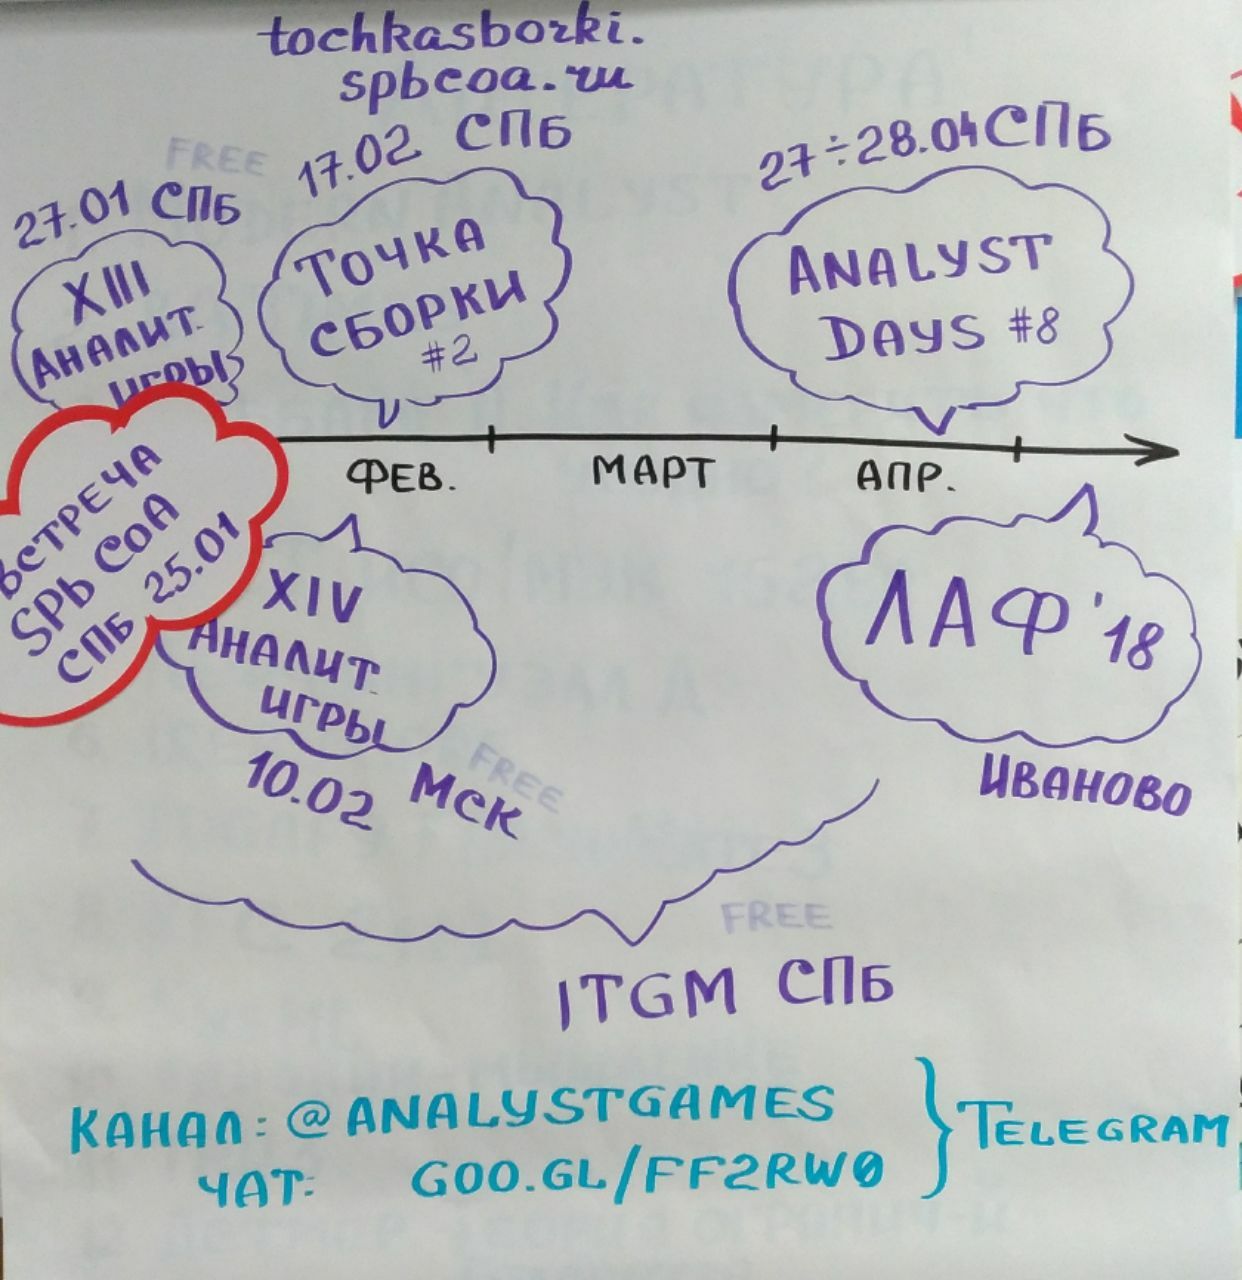 tochkasborki.
spbcoa.ru
FREE
27.01 СПБ
XIII
АНАЛИТ.
ИГРЫ
17.02 СПБ
ТОЧКА
СБОРКИ
#2
27÷28.04 СПБ
ANALYST
DAYS #8
ФЕВ.
МАРТ
АПР.
ВСТРЕЧА
SPb CoA
СПБ 25.01
XIV
АНАЛИТ.
ИГРЫ
10.02 МСК
FREE
ЛАФ'18
ИВАНОВО
FREE
ITGM СПБ
КАНАЛ: @ANALYSTGAMES
ЧАТ: GOO.GL/FF2RW0
TELEGRAM